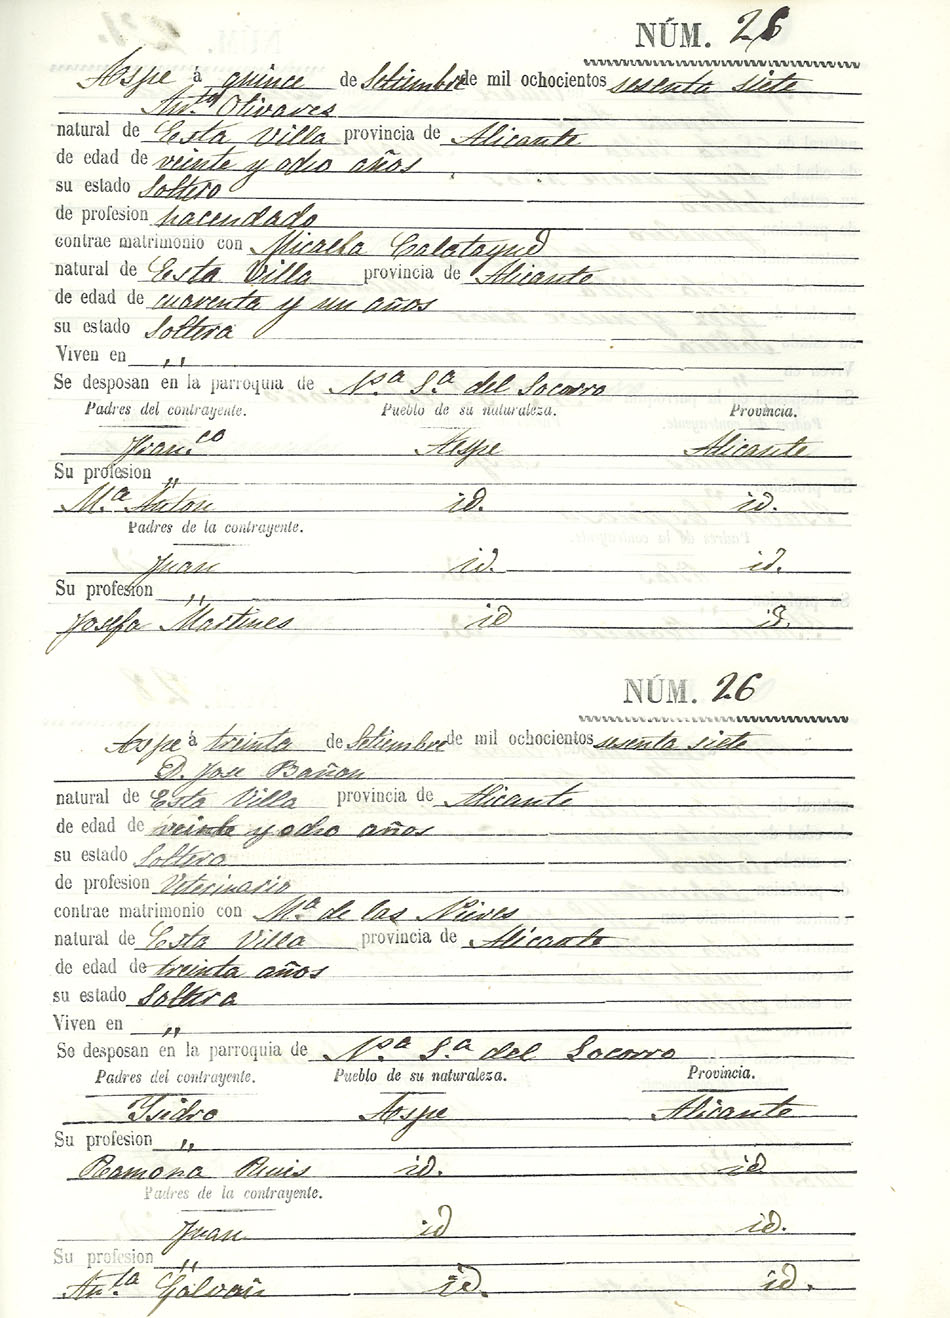 NÚM. 26
Aspe á quince de Setiembre de mil ochocientos sesenta siete
Antº Olivares
natural de Esta Villa provincia de Alicante
de edad de veinte y ocho años
su estado Soltero
de profesion hacendado
contrae matrimonio con Micaela Calatayud
natural de Esta Villa provincia de Alicante
de edad de cuarenta y un años
su estado Soltera
Viven en "
Se desposan en la parroquia de Nª Sª del Socorro
Padres del contrayente. Pueblo de su naturaleza. Provincia.
Franco Aspe Alicante
Su profesion "
Mª Anton id. id.
Padres de la contrayente.
Juan id. id.
Su profesion "
Josefa Martines id id.
NÚM. 26
Aspe á treinta de Setiembre de mil ochocientos sesenta siete
D. Jose Bañon
natural de Esta Villa provincia de Alicante
de edad de veinte y ocho años
su estado Soltero
de profesion Veterinario
contrae matrimonio con Mª de las Nieves
natural de Esta Villa provincia de Alicante
de edad de treinta años
su estado Soltera
Viven en "
Se desposan en la parroquia de Nª Sª del Socorro
Padres del contrayente. Pueblo de su naturaleza. Provincia.
Ysidro Aspe Alicante
Su profesion "
Ramona Ruis id. id
Padres de la contrayente.
Juan id id.
Su profesion "
Anta Galvañ id. id.